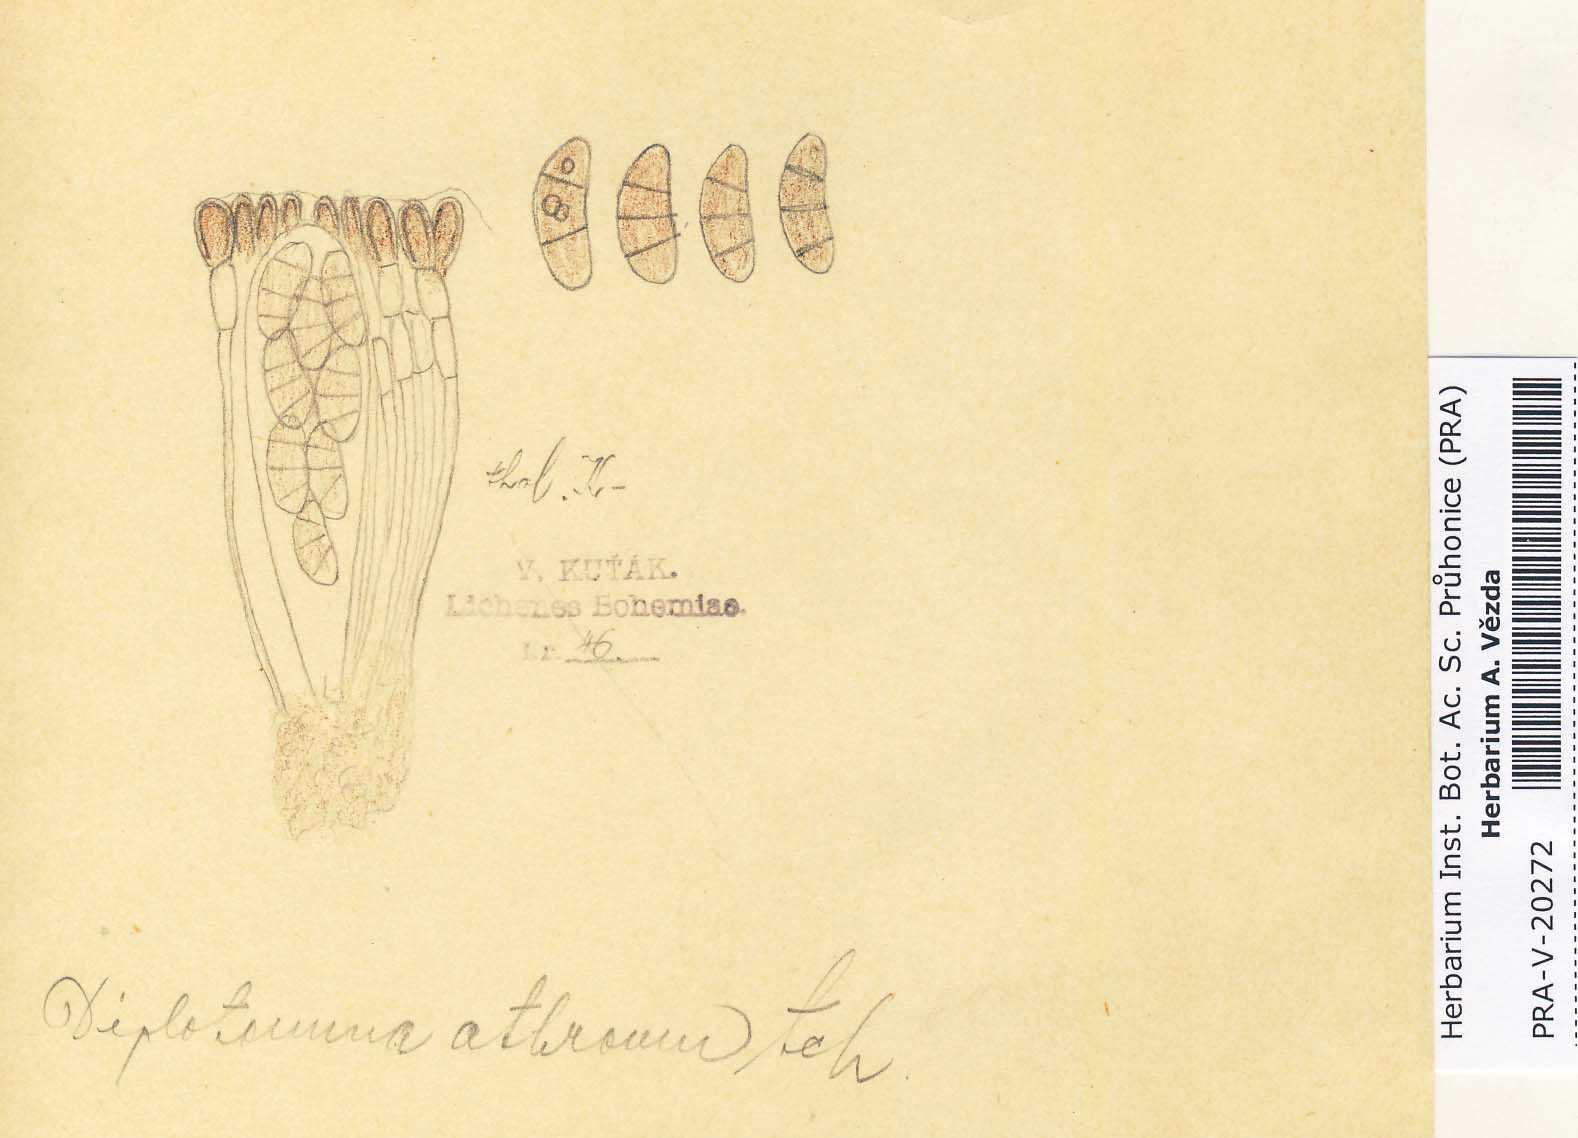 thal. K-
V. KUŤÁK.
Lichenes Bohemiae.
Nr. 46.
Diplotomma athroum Ach.
Herbarium Inst. Bot. Ac. Sc. Průhonice (PRA)
Herbarium A. Vězda
PRA-V-20272